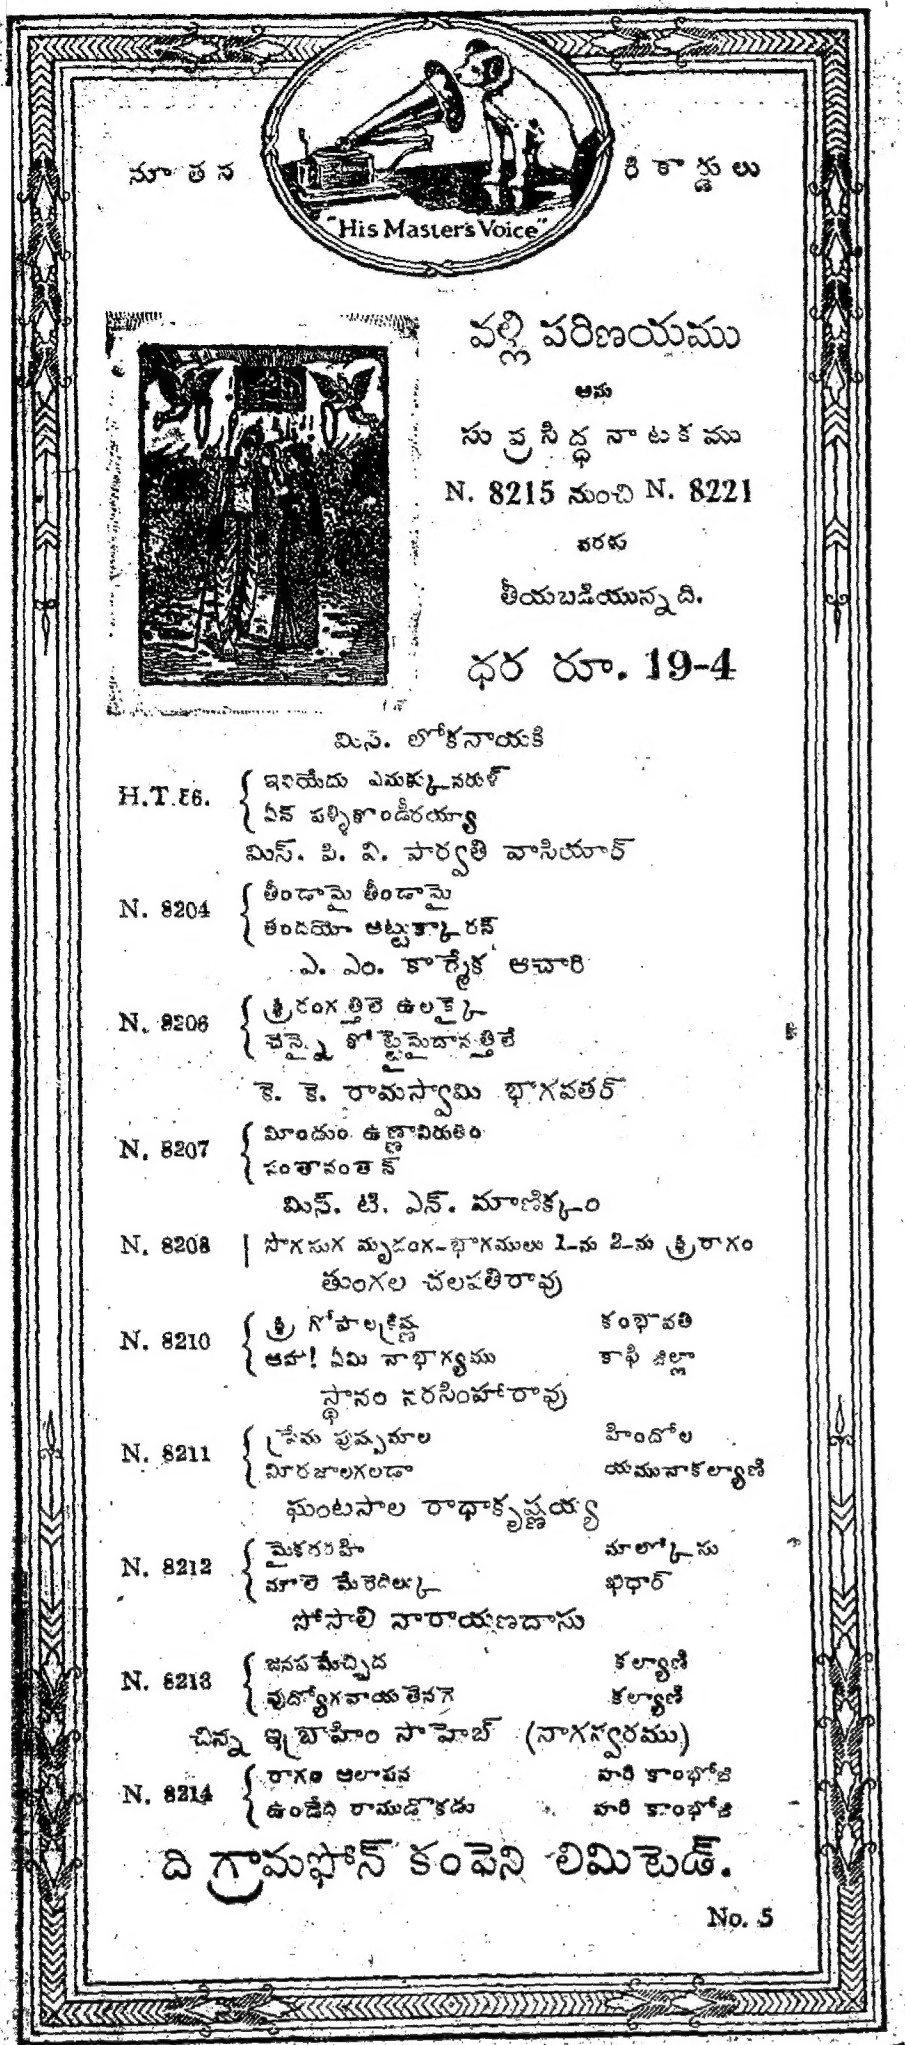 నూతన రికార్డులు
"His Master's Voice"
వల్లి పరిణయము
అను
సుప్రసిద్ధ నాటకము
N. 8215 నుంచి N. 8221
వరకు
తీయబడియున్నది.
ధర రూ. 19-4
మిస్. లోకనాయకి
H.T. ఇనియేదు ఎనుక్కువరుళ్
ఏన్ పళ్ళికొండీరయ్యా
మిస్. పి. వి. పార్వతి వాసియార్
N. 8204 తీండామై తీండామై
తందయో ఆట్టుక్కారన్
ఎ. ఎం. ఆచారి
N. 8206 శ్రీరంగత్తిలె ఉలక్కై
చెన్నై కోట్టైమైదానత్తిలే
కె. కె. రామస్వామి భాగవతర్
N. 8207
మిస్. టి. ఎన్. మాణిక్కం
N. 8208 సొగసుగ మృదంగ-భాగములు 1-ను 2-ను శ్రీరాగం
తుంగల చలపతిరావు
N. 8210 శ్రీ గోపాలక్రిష్ణ కంభావతి
ఆహా! ఏమి నాభాగ్యము కాఫి జిల్లా
స్థానం నరసింహారావు
N. 8211 ప్రేమ పుష్పమాల హిందోల
మీరజాలగలడా యమునాకల్యాణి
ఘంటసాల రాధాకృష్ణయ్య
N. 8212 మాల్కోసు
ఖిధార్
సోసాలి నారాయణదాసు
N. 8213 కల్యాణి
కల్యాణి
చిన్న ఇబ్రాహిం సాహెబ్ (నాగస్వరము)
N. 8214 రాగం ఆలాపన హరి కాంభోజి
ఉండేది రాముడొకడు హరి కాంభోజి
ది గ్రామఫోన్ కంపెని లిమిటెడ్.
No. 5